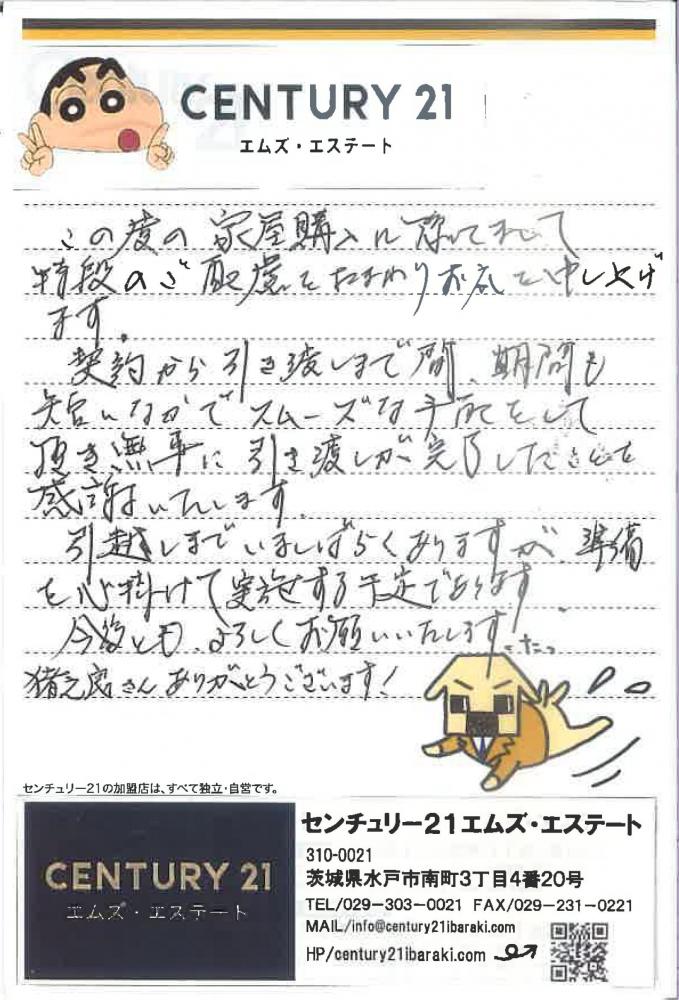 CENTURY 21
エムズ・エステート
この度の家屋購入に際しまして
特段のご配慮をたまわりお礼を申し上げ
ます。
契約から引き渡しまで間、期間も
短いなかでスムーズな手配をして
頂き無事に引き渡しが完了したことを
感謝いたします。
引越しまでいましばらくありますが、準備
を心掛けて実施する予定であります
今後とも、よろしくお願いいたします。
さんありがとうございます!
センチュリー21の加盟店は、すべて独立・自営です。
CENTURY 21
エムズ・エステート
センチュリー21エムズ・エステート
310-0021
茨城県水戸市南町3丁目4番20号
TEL/029-303-0021 FAX/029-231-0221
MAIL/info@century21ibaraki.com
HP/century21ibaraki.com